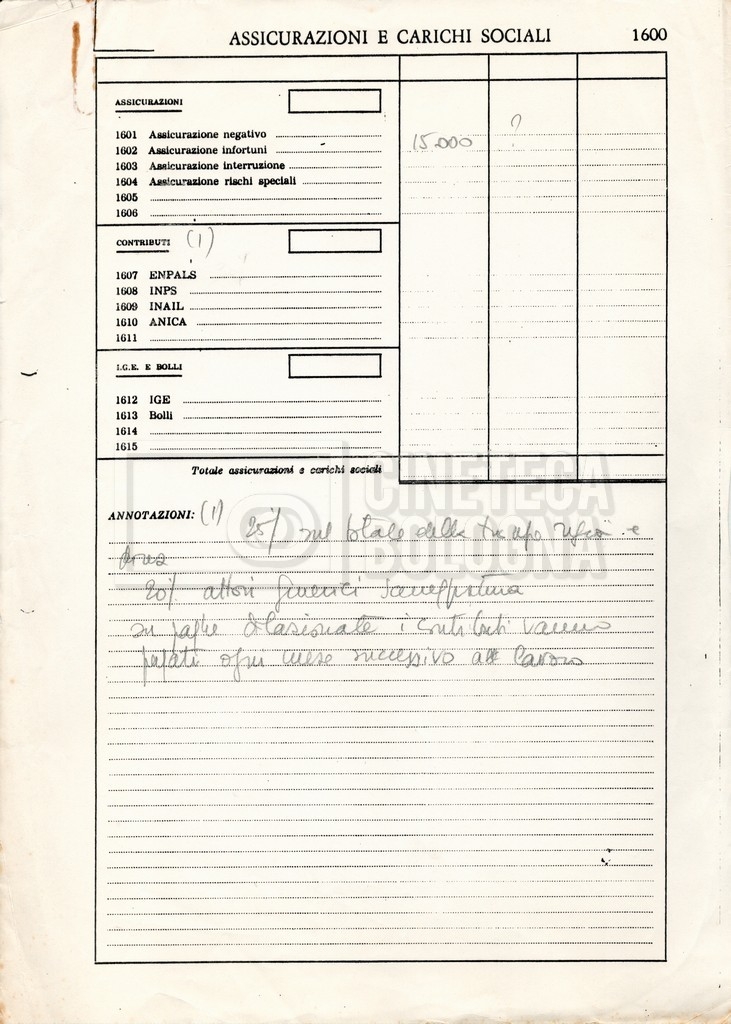 ASSICURAZIONI E CARICHI SOCIALI 1600
ASSICURAZIONI
?
1601 Assicurazione negativo
1602 Assicurazione infortuni 15.000
1603 Assicurazione interruzione
1604 Assicurazione rischi speciali
1605
1606
CONTRIBUTI (1)
1607 ENPALS
1608 INPS
1609 INAIL
1610 ANICA
1611
I.G.E. E BOLLI
1612 IGE
1613 Bolli
1614
1615
Totale assicurazioni e carichi sociali
CINETECA
BOLOGNA
ANNOTAZIONI: (1) 25% sul totale della troupe regia e
20% attori generici
su paghe i contributi vanno
pagati ogni mese successivo al lavoro